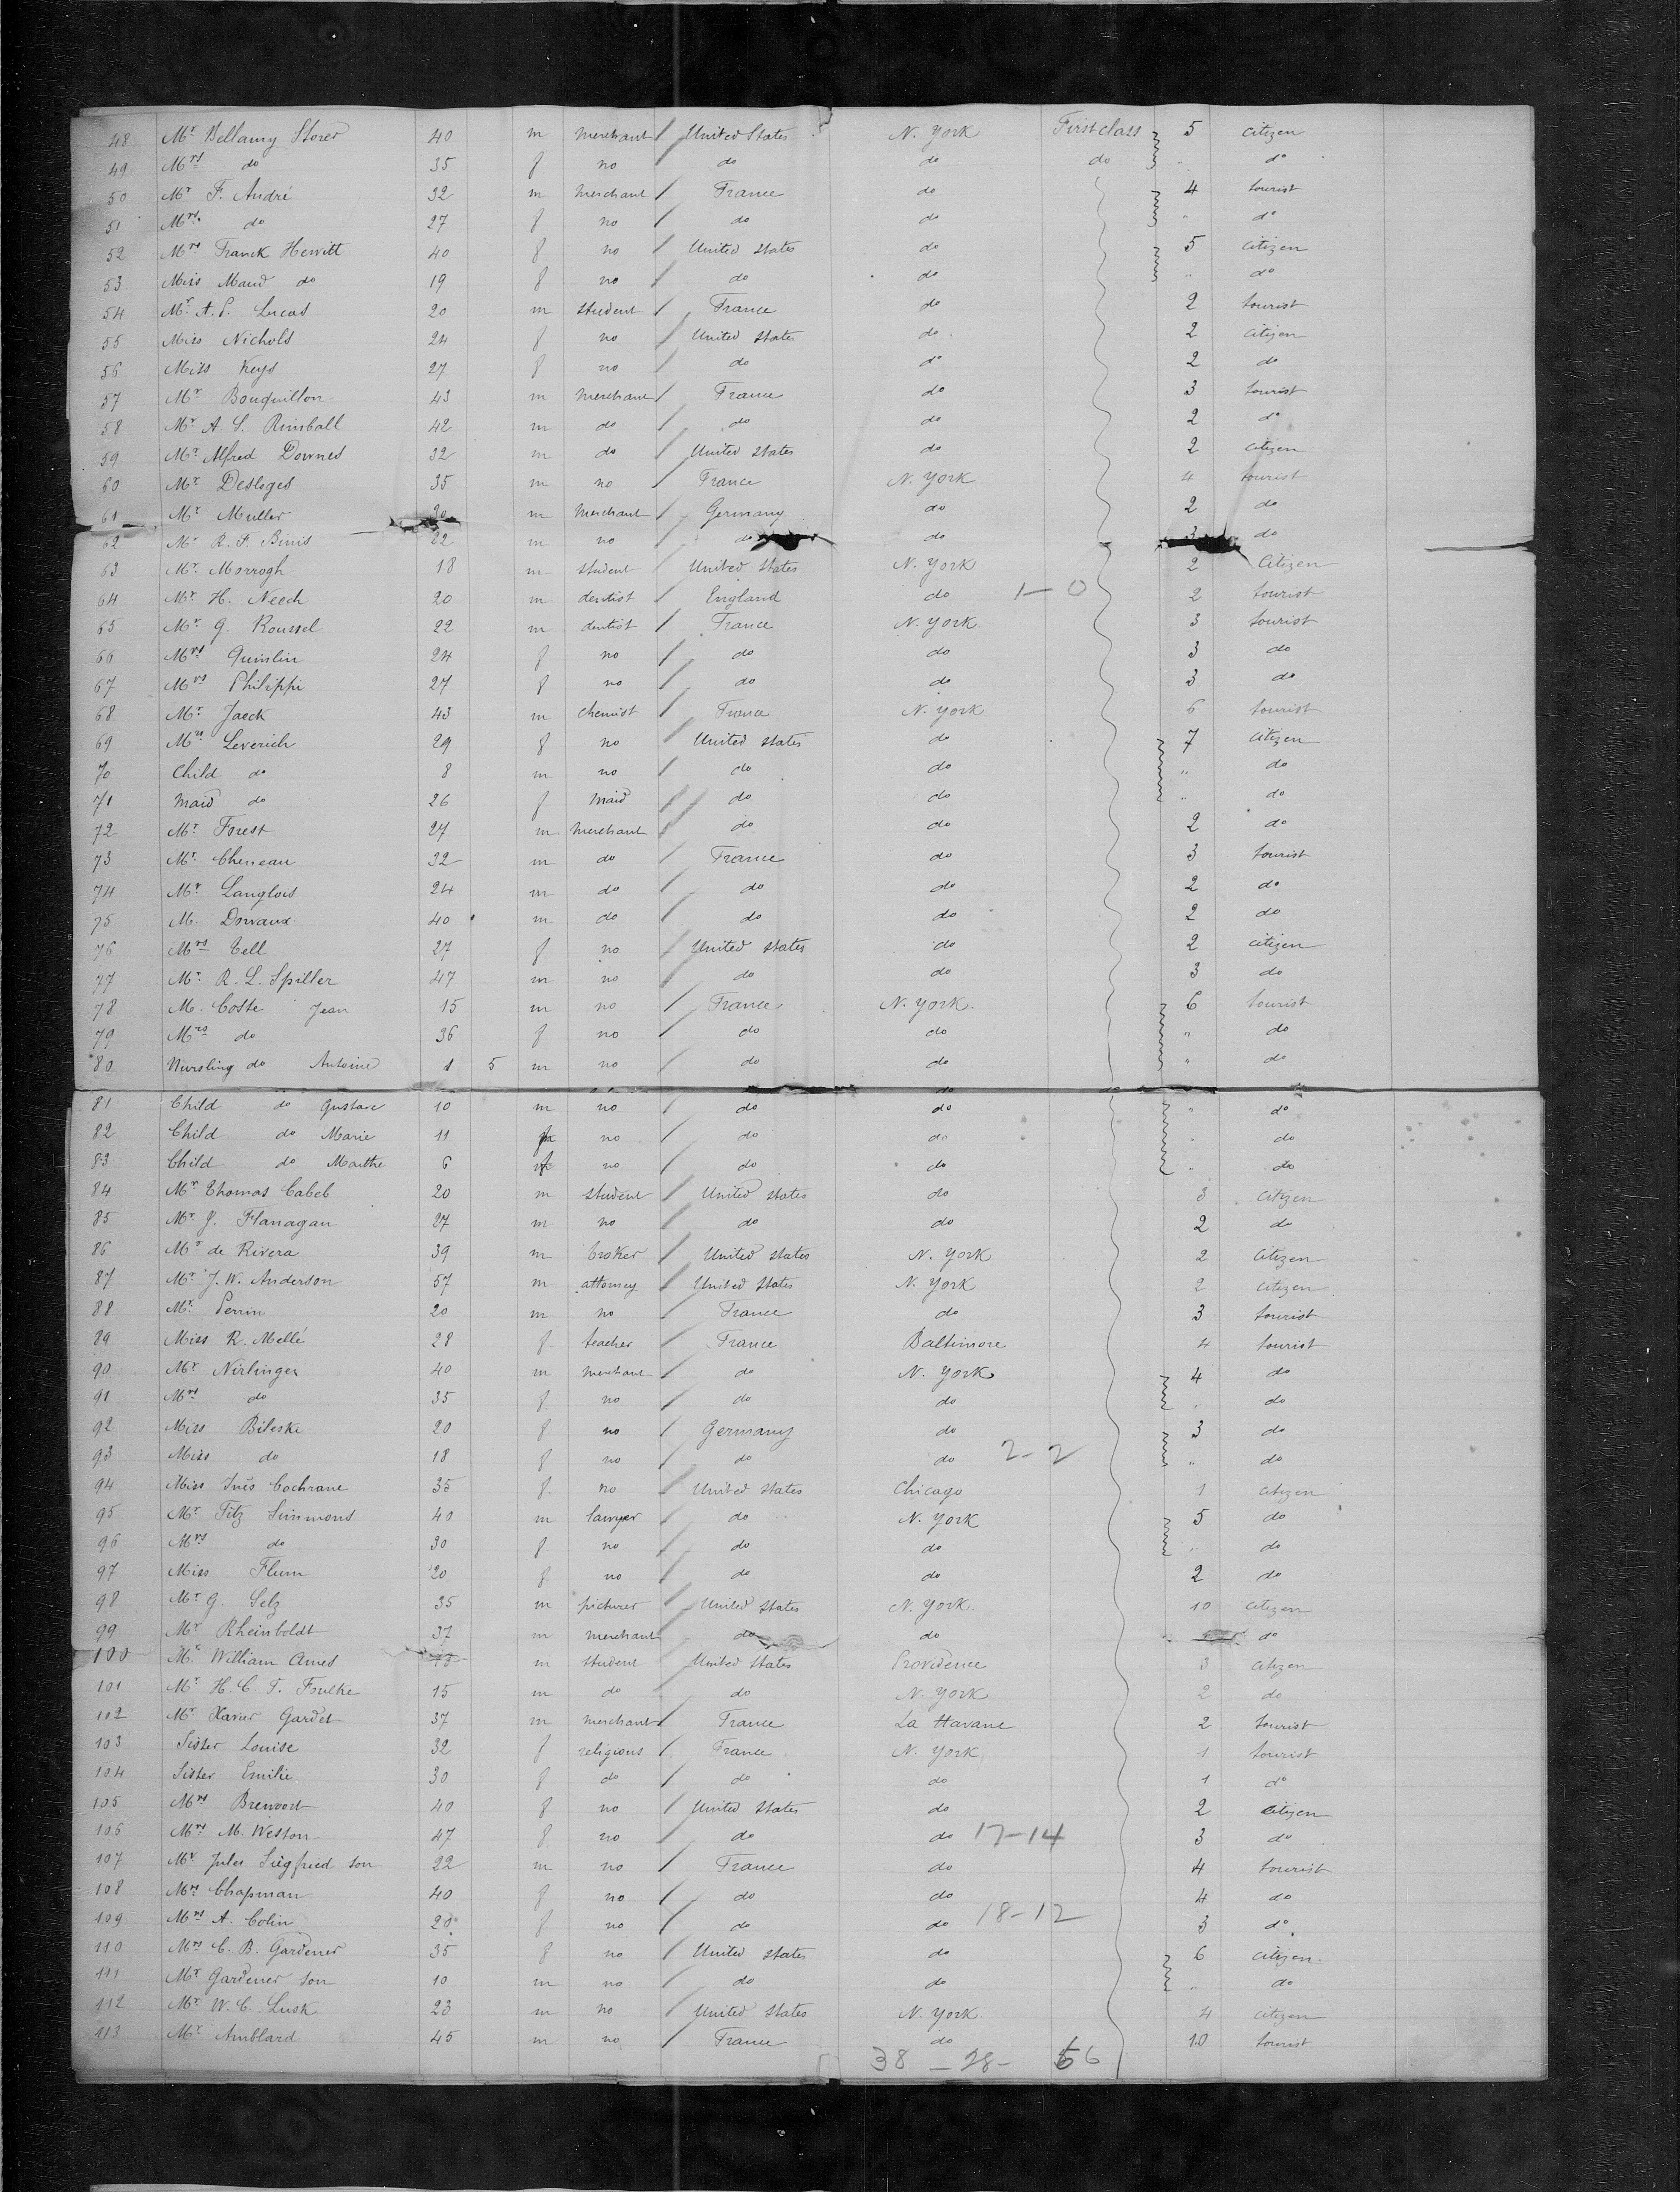 48 Mr Bellamy Storer 40 m merchant United States N. York First class 5 citizen
49 Mrs do 35 f no do do do " do
50 Mr F. André 32 m merchant France do 4 tourist
51 Mrs do 27 f no do do " do
52 Mrs Franck Hewitt 40 f no United States do 5 citizen
53 Miss Maud do 19 f no do do " do
54 Mr A. P. Lucas 20 m student France do 2 tourist
55 Miss Nichols 24 f no United States do 2 citizen
56 Miss Keys 27 f no do do 2 do
57 Mr Bouquillon 43 m merchant France do 3 tourist
58 Mr A S. Rimball 42 m do do do 2 do
59 Mr Alfred Downes 32 m do United States do 2 citizen
60 Mr Desleges 35 m no France N. York 4 tourist
61 Mr Muller m merchant Germany do 2 do
62 Mr R. F. 22 m no do do 3 do
63 Mr Morrogh 18 m student United States N. York 2 Citizen
64 Mr H. Neech 20 m dentist England do 1-0 2 tourist
65 Mr G. Roussel 22 m dentist France N. York 3 tourist
66 Mrs Quinlin 24 f no do do 3 do
67 Mrs Philippi 27 f no do do 3 do
68 Mr Jaeck 43 m chemist France N. York 6 tourist
69 Mrs Leverich 29 f no United States do 7 citizen
70 Child do 8 m no do do " do
71 Maid do 26 f maid do do " do
72 Mr Forest 27 m merchant do do 2 do
73 Mr Cheneau 32 m do France do 3 tourist
74 Mr Langlois 24 m do do do 2 do
75 M. Dorvaux 40 m do do do 2 do
76 Mrs Tell 27 f no United States do 2 citizen
77 Mr R. L. Spiller 47 m no do do 3 do
78 M. Coste Jean 15 m no France N. York 6 tourist
79 Mrs do 36 f no do do " do
80 Nursling do Antoine 1 5 m no do do " do
81 Child do Gustave 10 m no do do " do
82 Child do Marie 11 f no do do " do
83 Child do Marthe 6 f no do do " do
84 Mr Thomas Cabeb 20 m student United States do 3 citizen
85 Mr J. Flanagan 27 m no do do 2 do
86 Mr de Rivera 39 m broker United States N. York 2 Citizen
87 Mr J. W. Anderson 57 m attorney United States N. York 2 citizen
88 Mr Perrin 20 m no France do 3 tourist
89 Miss R. Mellé 28 f teacher France Baltimore 4 tourist
90 Mr Nirlinger 40 m merchant do N. York 4 do
91 Mrs do 35 f no do do " do
92 Miss Bileski 20 f no Germany do 3 do
93 Miss do 18 f no do do 2-2 " do
94 Miss Inès Cochrane 35 f no United States Chicago 1 citizen
95 Mr Fitz Simmons 40 m lawyer do N. York 5 do
96 Mrs do 30 f no do do " do
97 Miss Flum 20 f no do do 2 do
98 Mr G. Selz 35 m picturer United States N. York 10 citizen
99 Mr Rheinboldt 37 m merchant do do do
100 Mr William Ames m student United States Providence 3 citizen
101 Mr H. C. T. Foulke 15 m do do N. York 2 do
102 Mr Xavier Gardet 37 m merchant France La Havane 2 tourist
103 Sister Louise 32 f religious France N. York 1 tourist
104 Sister Emilie 30 f do do do 1 do
105 Mrs Brevoort 40 f no United States do 2 citizen
106 Mrs M. Weston 47 f no do do 17-14 3 do
107 Mr Jules Siegfried son 22 m no France do 4 tourist
108 Mrs Chapman 40 f no do do 4 do
109 Mrs A. Colin 20 f no do do 18-12 3 do
110 Mrs C. B. Gardener 35 f no United States do 6 citizen.
111 Mr Gardener son 10 m no do do " do
112 Mr W. C. Lusk 23 m no United States N. York 4 citizen
113 Mr Amblard 45 m no France do 10 tourist
38 - 28 - 66